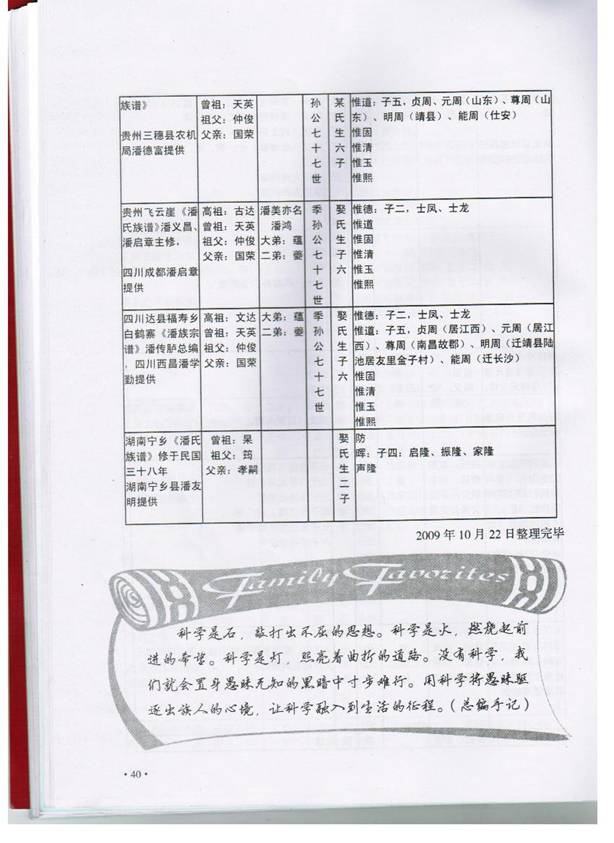 族谱》
贵州三穗县农机
局潘德富提供
曾祖：天英
祖父：仲俊
父亲：国荣
孙公七十七世
某氏生六子
惟道：子五，贞周、元周（山东）、尊周（山
东）、明周（靖县）、能周（仕安）
惟固
惟清
惟玉
惟熙
贵州飞云崖《潘
氏族谱》潘义昌、
潘启章主修，
四川成都潘启章
提供
高祖：古达
曾祖：天英
祖父：仲俊
父亲：国荣
潘美亦名
潘鸿
大弟：蕴
二弟：夔
季孙公七十七世
娶氏生子六
惟德：子二，士凤、士龙
惟道
惟固
惟清
惟玉
惟熙
四川达县福寿乡
白鹤寨《潘族宗
谱》潘传胪总编
，四川西昌潘学
勤提供
高祖：文达
曾祖：天英
祖父：仲俊
父亲：国荣
大弟：蕴
二弟：夔
季孙公七十七世
娶氏生子六
惟德：子二，士凤、士龙
惟道：子五，贞周（居江西）、元周（居江
西）、尊周（南昌故郡）、明周（迁靖县陆
池居友里金子村）、能周（迁长沙）
惟固
惟清
惟玉
惟熙
湖南宁乡《潘氏
族谱》修于民国
三十八年
湖南宁乡县潘友
明提供
曾祖：杲
祖父：筠
父亲：孝嗣
娶氏生二子
防
晖：子四：启隆、振隆、家隆
声隆
2009 年 10 月 22 日整理完毕
Family Favorites
科学是石，敲打出不屈的思想。科学是火，燃烧起前
进的希望。科学是灯，照亮着曲折的道路。没有科学，我
们就会置身愚昧无知的黑暗中寸步难行。用科学将愚昧驱
逐出族人的心境，让科学融入到生活的征程。（总编手记）
·40·